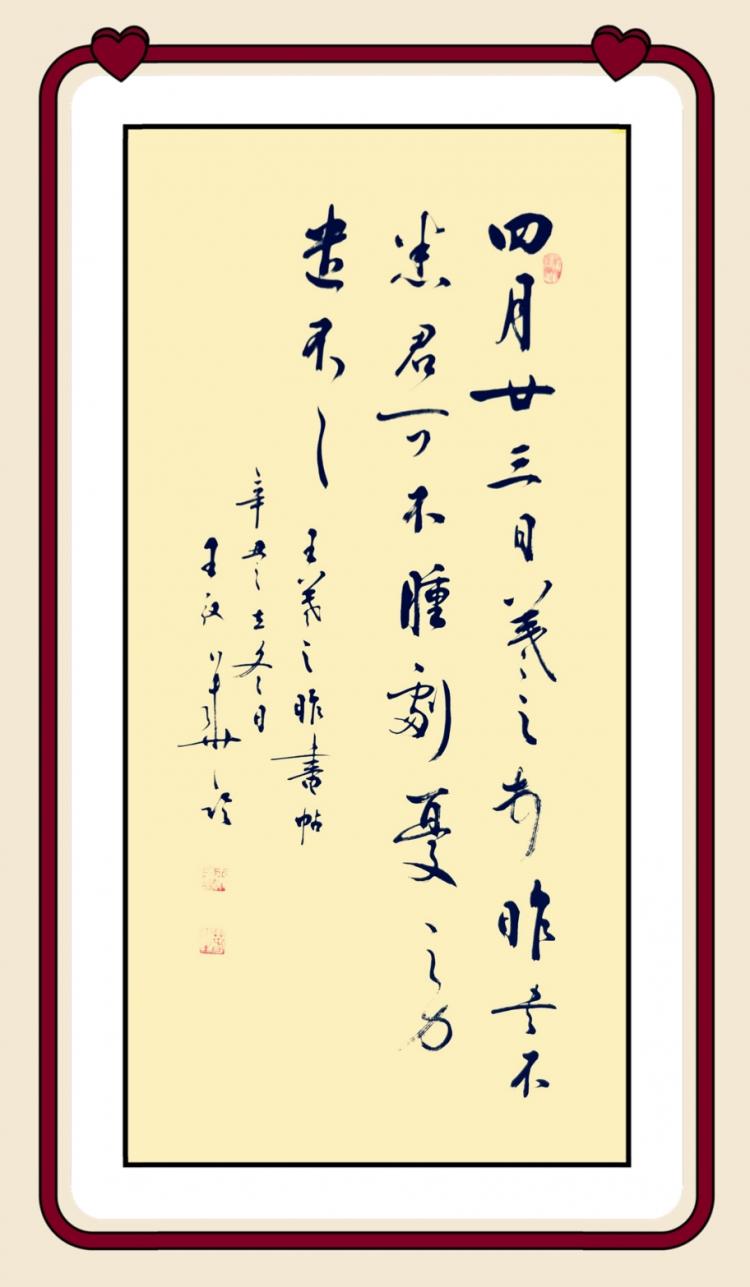 四月廿三日羲之昨書不
悉君可不腫劇憂之力
遣不
王羲之昨書帖
辛丑立冬日
王華